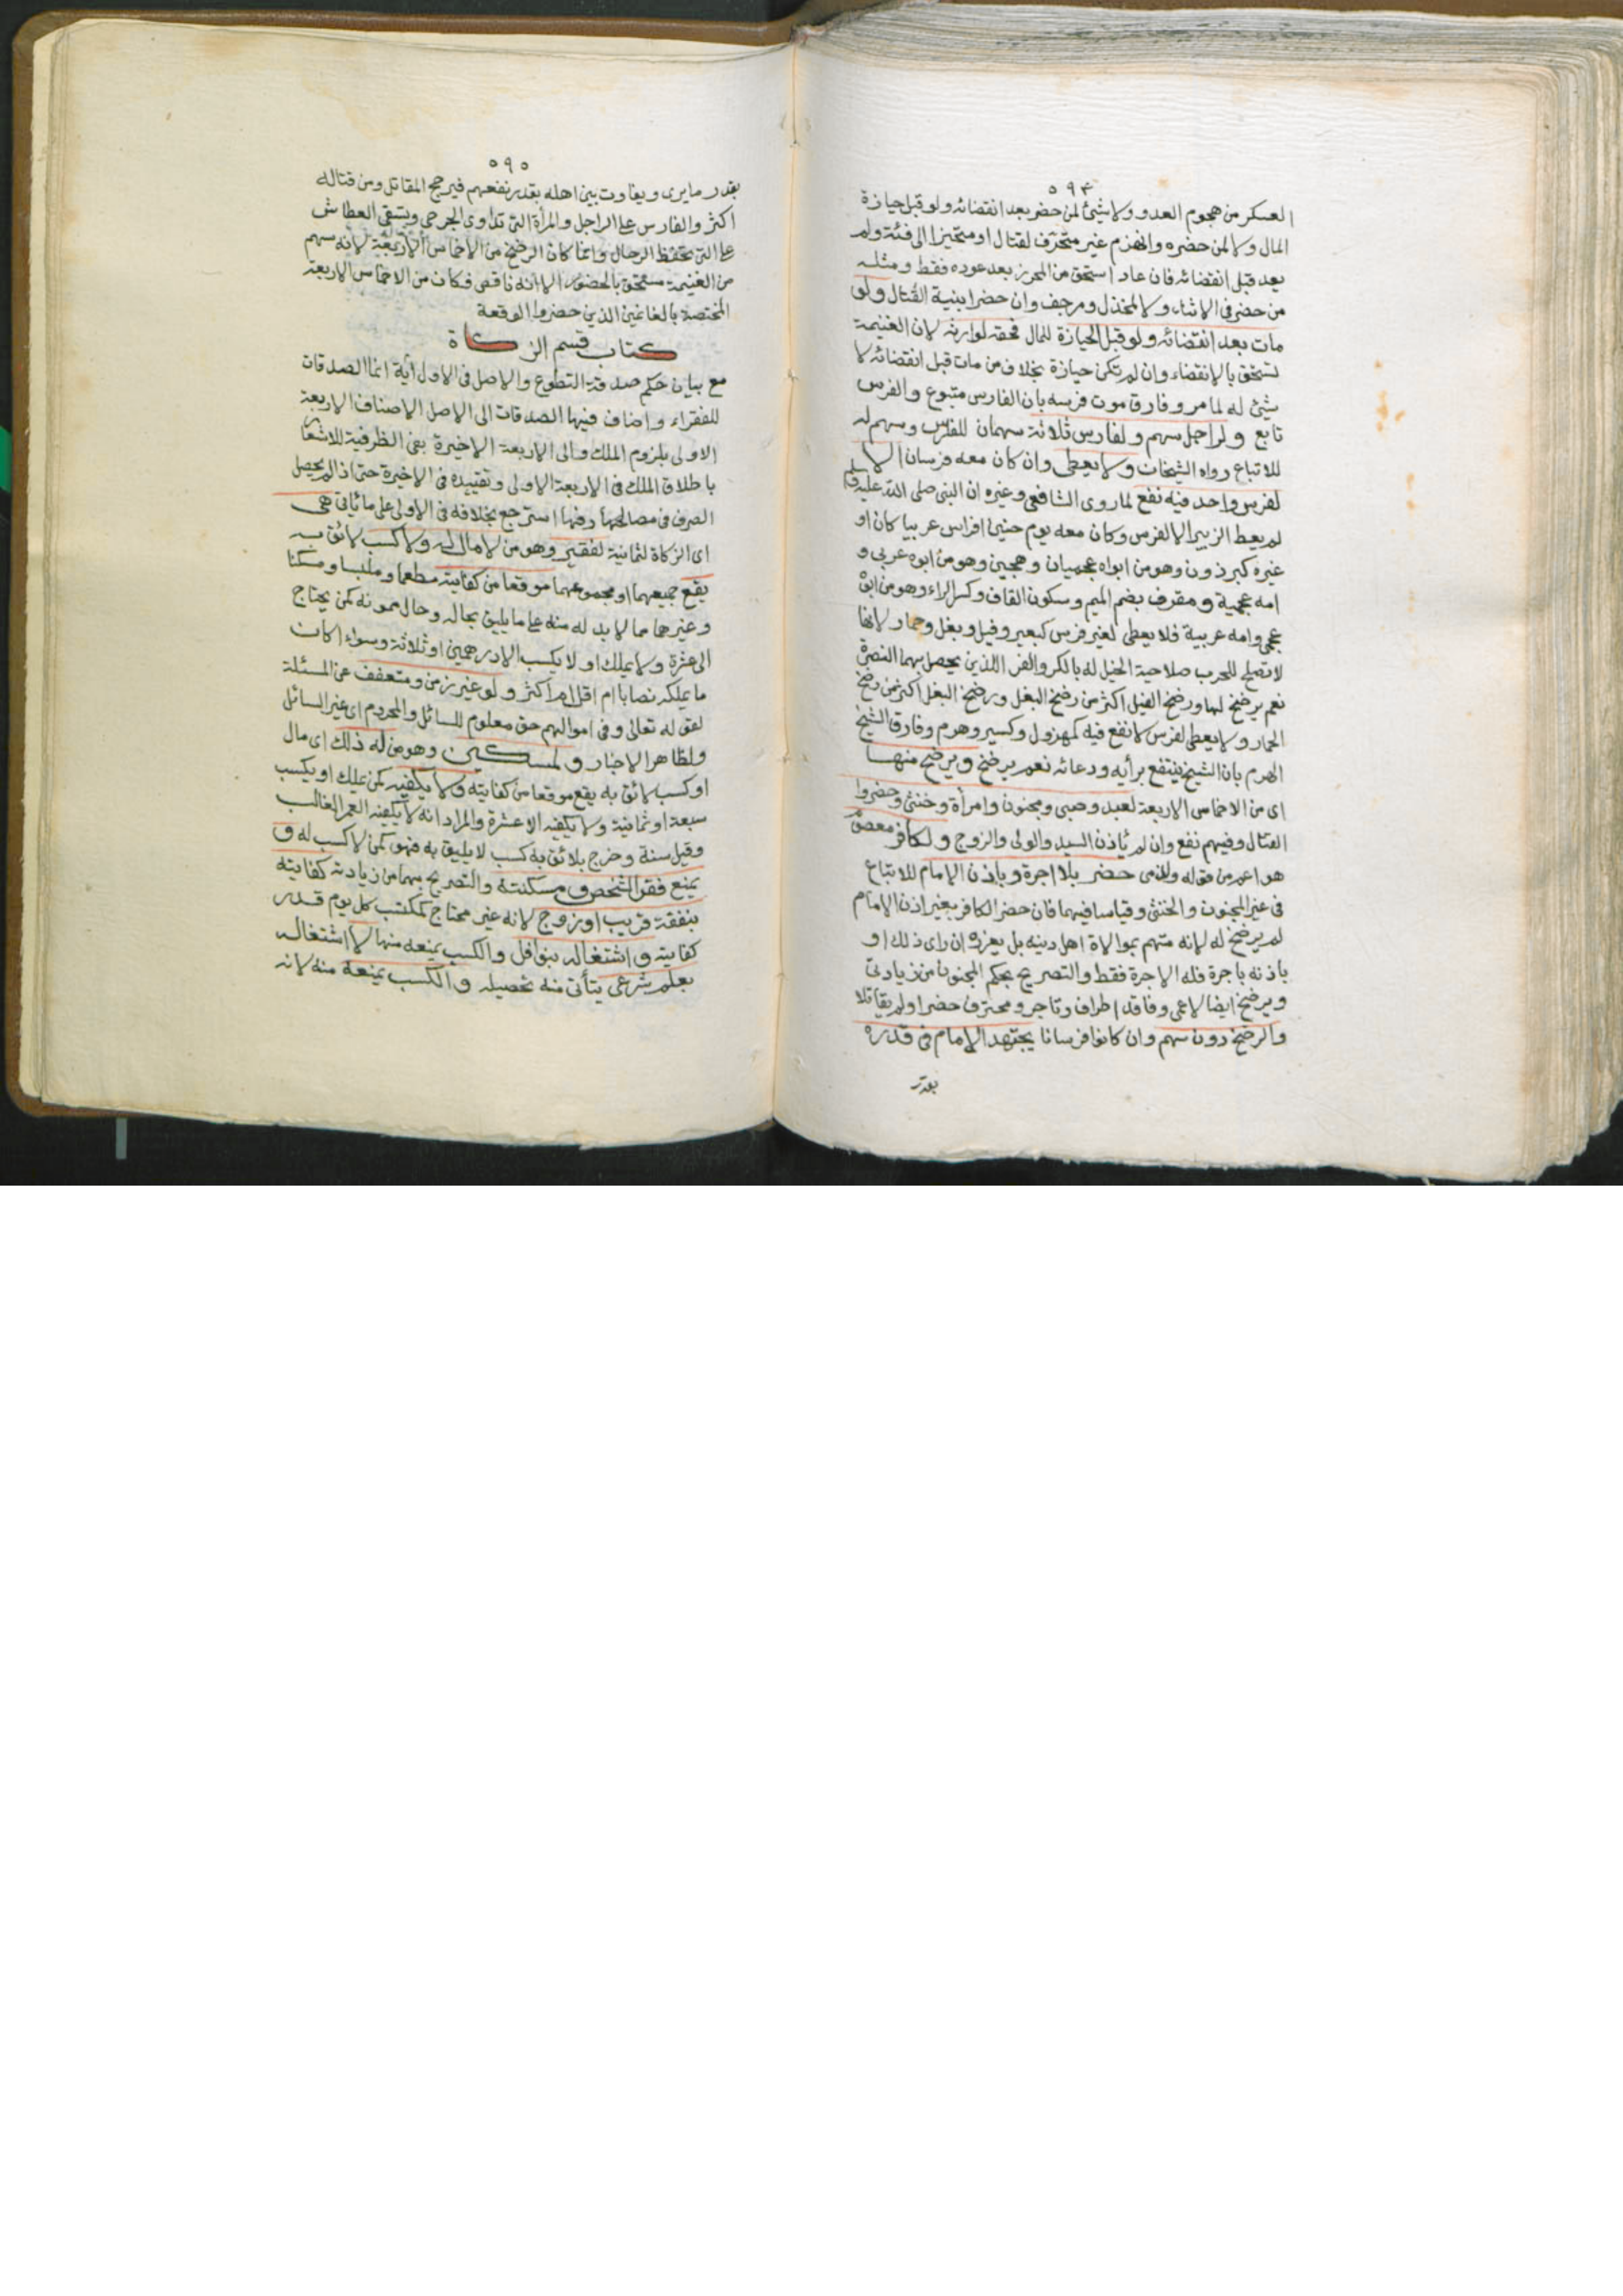 ٥٩٤
العسكر من هجوم العدو ولا شيئ لمن حضر بعد انقضائه ولو قبل حيازة
المال ولا لمن حضره وانهزم غير متحرف لقتال او متحيزا الى فئة ولم
يعد قبل انقضائه فان عاد استحق من المحرز بعد عوده فقط ومثله
من حضر فى الاثناء ولا لمخذل ومرجف وان حضرا بنية القتال ولو
مات بعد انقضائه ولو قبل الحيازة للمال فحقه لوارثه لان الغنيمة
تستحق بالانقضاء وان لم تكن حيازة بخلاف من مات قبل انقضائه لا
شيئ له لما مر وفارق موت فرسه بان الفارس متبوع والفرس
تابع ولراجل سهم ولفارس ثلاثة سهمان للفرس وسهم له
للاتباع رواه الشيخان ولا يعطى وان كان معه فرسان الا
لفرس واحد فيه نفع لما روى الشافعى وغيره ان النبى صلى الله عليه وسلم
لم يعط الزبير الا لفرس وكان معه يوم حنين افراس عربيا كان او
غيره كبرذون وهو من ابواه عجميان وهجين وهو من ابوه عربى و
امه عجمية ومقرف بضم الميم وسكون القاف وكسر الراء وهو من ابوه
عجمى وامه عربية فلا يعطى لغير فرس كبعير وفيل وبغل وحمار لانها
لا تصلح للحرب صلاحية الخيل له بالكر والفر اللذين يحصل بهما النصرة
نعم يرضخ لها ورضخ الفيل اكثر من رضخ البغل ورضخ البغل اكثر من رضخ
الحمار ولا يعطى لفرس لا نفع فيه كمهزول وكسير وهرم وفارق الشيخ
الهرم بان الشيخ ينتفع برأيه ودعائه نعم يرضخ ويرضخ منها
اى من الاخماس الاربعة لعبد وصبى ومجنون وامرأة وخنثى حضروا
القتال وفيهم نفع وان لم يأذن السيد والولى والزوج ولكافر معصوم
هو اعم من قوله ولذمى حضر بلا اجرة وباذن الامام للاتباع
فى غير المجنون والخنثى وقياسا فيهما فان حضر الكافر بغير اذن الامام
لم يرضخ له لانه متهم بموالاة اهل دينه بل يعزره ان راى ذلك او
باذنه باجرة فله الاجرة فقط والتصريح بحكم المجنون من زيادتى
ويرضخ ايضا لاعمى وفاقد اطراف وتاجر ومحترف حضرا ولم يقاتلا
والرضخ دون سهم وان كانوا فرسانا يجتهد الامام فى قدره
بقدر
٥٩٥
بقدر ما يرى ويفاوت بين اهله بقدر نفعهم فيرجح المقاتل ومن قتاله
اكثر والفارس على الراجل والمرأة التى تداوى الجرحى وتسقى العطاش
على التى تحفظ الرحال وانما كان الرضخ من الاخماس الاربعة لانه سهم
من الغنيمة مستحق بالحضور الا انه ناقص فكان من الاخماس الاربعة
المختصة بالغانمين الذين حضروا الوقعة
كتاب قسم الزكاة
مع بيان حكم صدقة التطوع والاصل فى الاول آية انما الصدقات
للفقراء واضاف فيها الصدقات الى الاصل الاصناف الاربعة
الاولى بلزوم الملك والى الاربعة الاخيرة بفى الظرفية للاشعار
باطلاق الملك فى الاربعة الاولى وتقييده فى الاخيرة حتى اذا لم يحصل
الصرف فى مصالحها رفها استرجع بخلافه فى الاولى على ما يأتى هى
اى الزكاة لثمانية لفقير وهو من لا مال له ولا كسب لائق به
يقع جميعهما او مجموعهما موقعا من كفايته مطعما وملبسا ومسكنا
وغيرهما مما لا بد له منه على ما يليق بحاله وحال ممونه كمن يحتاج
الى عشرة ولا يملك او لا يكسب الا درهمين او ثلاثة وسواء اكان
ما يملكه نصابا ام اقل ام اكثر ولو غير زمن ومتعفف عن المسئلة
لقوله تعالى وفى اموالهم حق معلوم للسائل والمحروم اى غير السائل
ولظاهر الاخبار ولمسكين وهو من له ذلك اى مال
او كسب لائق به يقع موقعا من كفايته ولا يكفيه كمن يملك او يكسب
سبعة او ثمانية ولا يكفيه الا عشرة والمراد انه لا يكفيه العمر الغالب
وقيل سنة وخرج بلائق به كسب لا يليق به فهو كمن لا كسب له و
يمنع فقر الشخص ومسكنته والتصريح بهما من زيادته كفايته
بنفقة قريب او زوج لانه غير محتاج كمكتسب كل يوم قدر
كفايته واشتغاله بنوافل والكسب يمنعه منها لا اشتغاله
بعلم شرعى يتأتى منه تحصيله والكسب يمنعه منه لانه